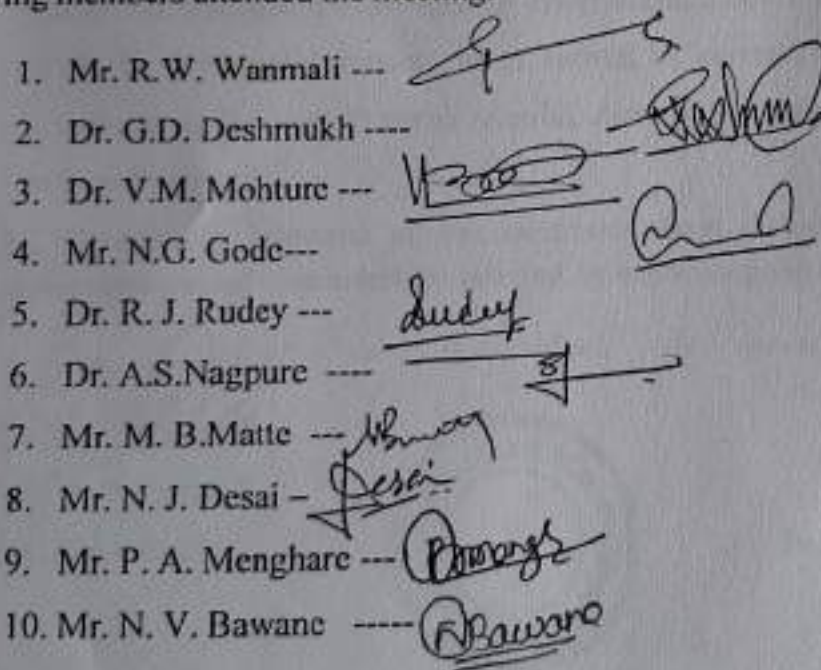 ing members attended the meeting
1. Mr. R.W. Wanmali ---
2. Dr. G.D. Deshmukh ----
3. Dr. V.M. Mohture ---
4. Mr. N.G. Gode---
5. Dr. R. J. Rudey --- Rudey
6. Dr. A.S.Nagpure ----
7. Mr. M. B.Matte ---
8. Mr. N. J. Desai – Desai
9. Mr. P. A. Menghare ---
10. Mr. N. V. Bawane ----- NBawane